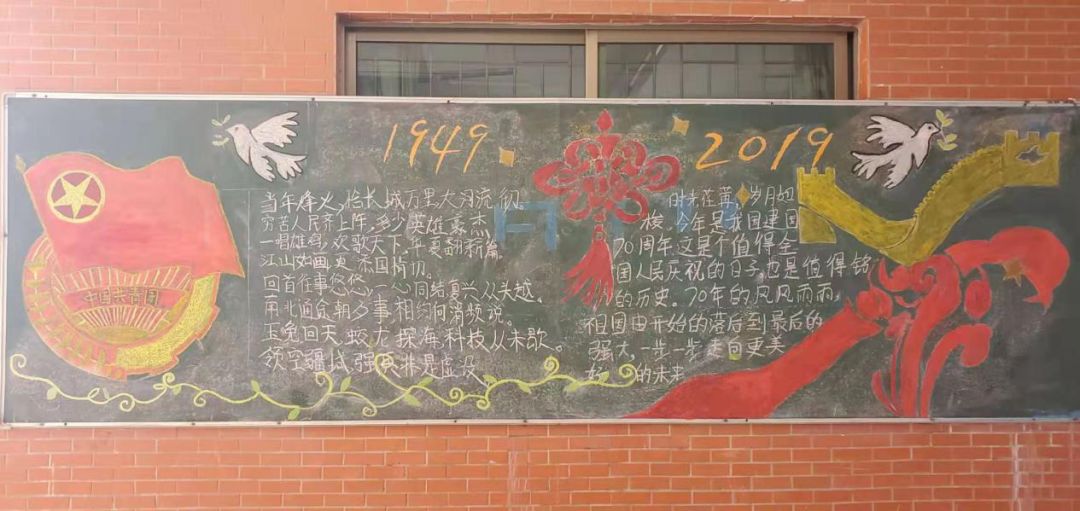 1949
2019
中国共青团
当年烽火,怆长城万里大河流彻。
穷苦人民齐上阵,多少英雄豪杰,
一唱雄鸡,欢歌天下,华夏翻新篇。
江山如画,炎 南北通合朝夕事,相约何消频说。
回首往事悠悠,一心同结复兴从头越。
玉兔回天,蛟龙探海,科技从未歇。
领空疆域,强 是虚设
时光荏苒,岁月如
梭,今年是我国建国
70周年,这是个值得全
国人民庆祝的日子,也是值得铭
的历史。70年的风风雨雨,
祖国由开始的落后到最后的
强大,一步一步走向更美
好 的未来